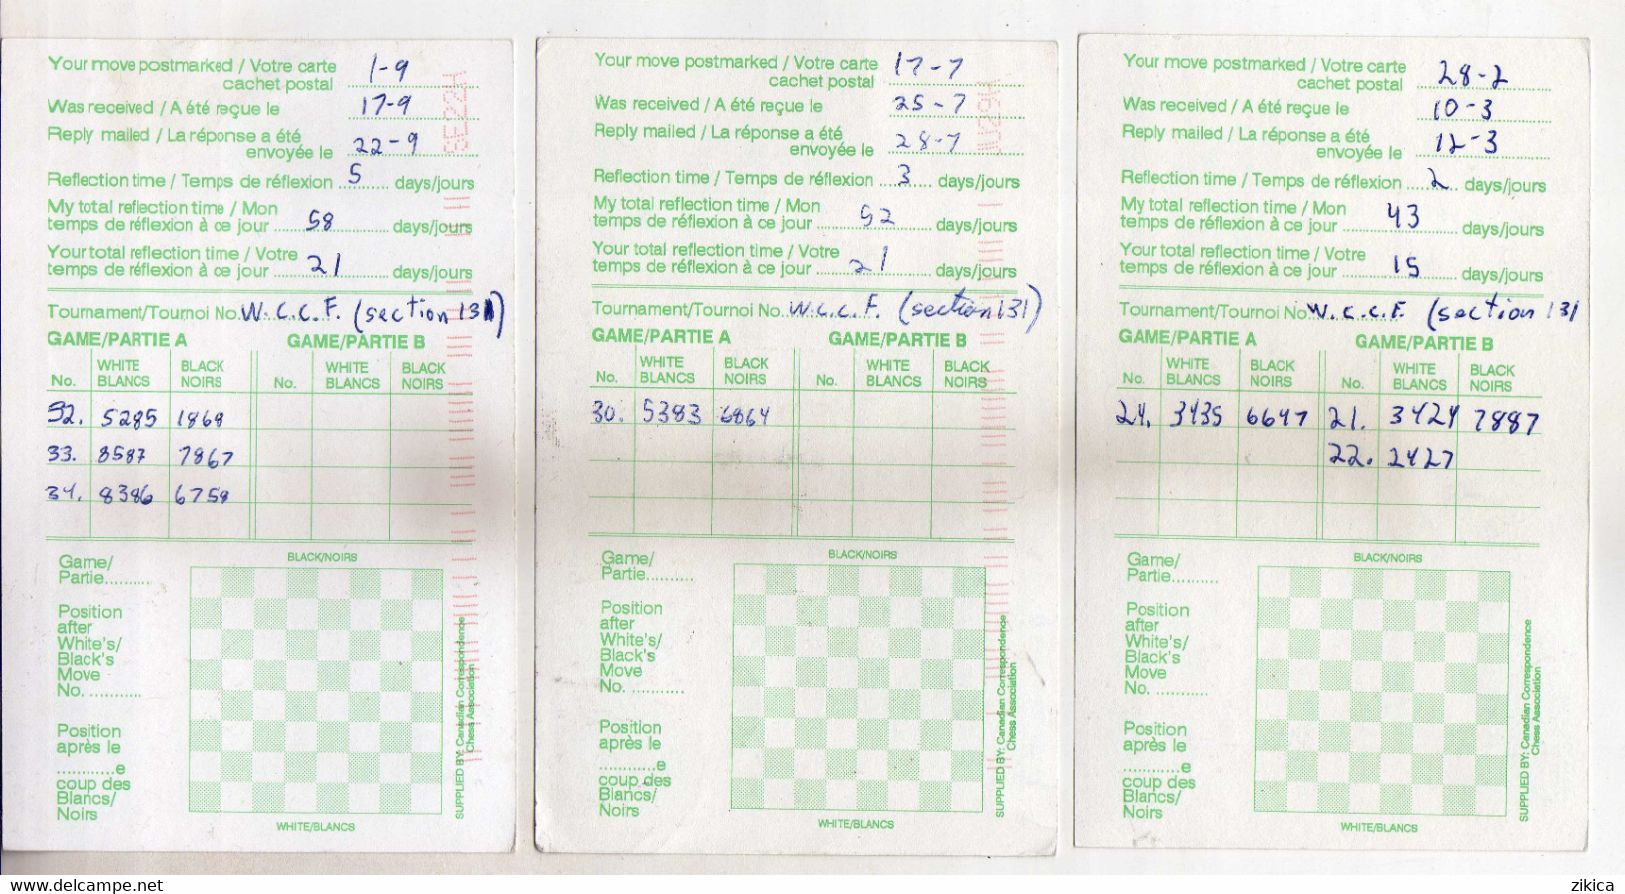 Your move postmarked / Votre carte 1-9
cachet postal
Was received / A été reçue le 17-9
Reply mailed / La réponse a été
envoyée le 22-9
Reflection time / Temps de réflexion ......... 5 days/jours
My total reflection time / Mon
temps de réflexion à ce jour 58 days/jours
Your total reflection time / Votre
temps de réflexion à ce jour 21 days/jours
Tournament/Tournoi No. W.C.C.F. (section 131)
GAME/PARTIE A GAME/PARTIE B
No. WHITE BLANCS BLACK NOIRS No. WHITE BLANCS BLACK NOIRS
32. 5285 1868
33. 8587 7867
34. 8386 6758
BLACK/NOIRS
Game/
Partie..........
Position
after
White's/
Black's
Move
No. ............
Position
après le
.............e
coup des
Blancs/
Noirs
WHITE/BLANCS
SUPPLIED BY: Canadian Correspondence
Chess Association
Your move postmarked / Votre carte 17-7
cachet postal
Was received / A été reçue le 25-7
Reply mailed / La réponse a été
envoyée le 28-7
Reflection time / Temps de réflexion 3 days/jours
My total reflection time / Mon
temps de réflexion à ce jour 52 days/jours
Your total reflection time / Votre
temps de réflexion à ce jour 21 days/jours
Tournament/Tournoi No. W.C.C.F. (section 131)
GAME/PARTIE A GAME/PARTIE B
No. WHITE BLANCS BLACK NOIRS No. WHITE BLANCS BLACK NOIRS
30. 5383 6864
BLACK/NOIRS
Game/
Partie..........
Position
after
White's/
Black's
Move
No. ............
Position
après le
.............e
coup des
Blancs/
Noirs
WHITE/BLANCS
SUPPLIED BY: Canadian Correspondence
Chess Association
Your move postmarked / Votre carte 28-2
cachet postal
Was received / A été reçue le 10-3
Reply mailed / La réponse a été
envoyée le 12-3
Reflection time / Temps de réflexion 2 days/jours
My total reflection time / Mon
temps de réflexion à ce jour 43 days/jours
Your total reflection time / Votre
temps de réflexion à ce jour 15 days/jours
Tournament/Tournoi No. W.C.C.F. (section 131
GAME/PARTIE A GAME/PARTIE B
No. WHITE BLANCS BLACK NOIRS No. WHITE BLANCS BLACK NOIRS
24. 3435 6647 21. 3424 7887
22. 2427
BLACK/NOIRS
Game/
Partie..........
Position
after
White's/
Black's
Move
No. ............
Position
après le
.............e
coup des
Blancs/
Noirs
WHITE/BLANCS
SUPPLIED BY: Canadian Correspondence
Chess Association
www.delcampe.net
zikica